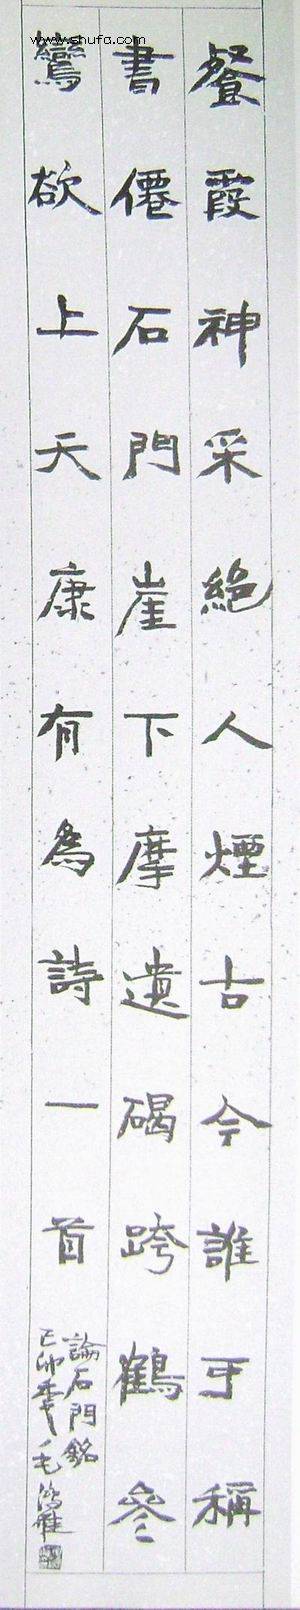 www.shufa.com
餐霞神采絕人煙古今誰可稱
書僊石門崖下摩遺碣跨鶴參
鸞欲上天康有為詩一首
論石門銘
己卯 毛